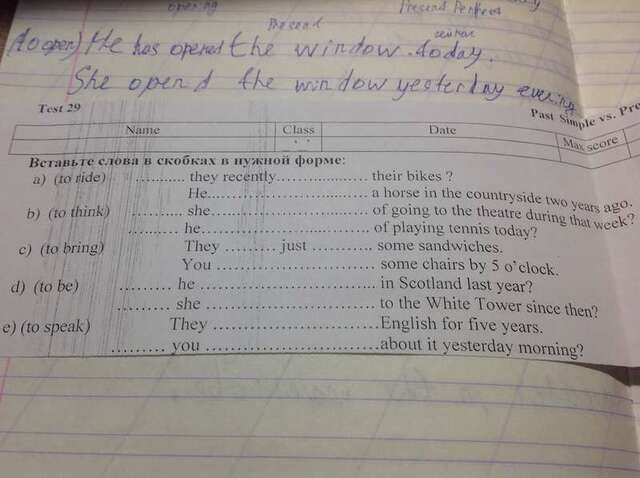 opening
Present Perfect
Present
сейчас
(to open) He has opened the window today.
She opend the window yesterday evening
Test 29
Past Simple vs. Pre
Name Class Date Max score
Вставьте слова в скобках в нужной форме:
a) (to ride) ........... they recently....................... their bikes ?
He............................... a horse in the countryside two years ago.
b) (to think) .......... she............................... of going to the theatre during that week?
........... he................................ of playing tennis today?
c) (to bring) They ......... just ............ some sandwiches.
You .............................. some chairs by 5 o'clock.
d) (to be) .......... he ................................ in Scotland last year?
.......... she ............................... to the White Tower since then?
e) (to speak) They ...............................English for five years.
......... you ................................about it yesterday morning?